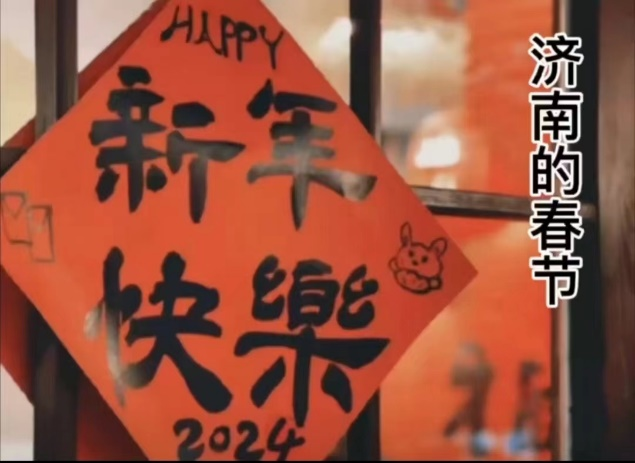 HAPPY
新年
快樂
2024
济南的春节